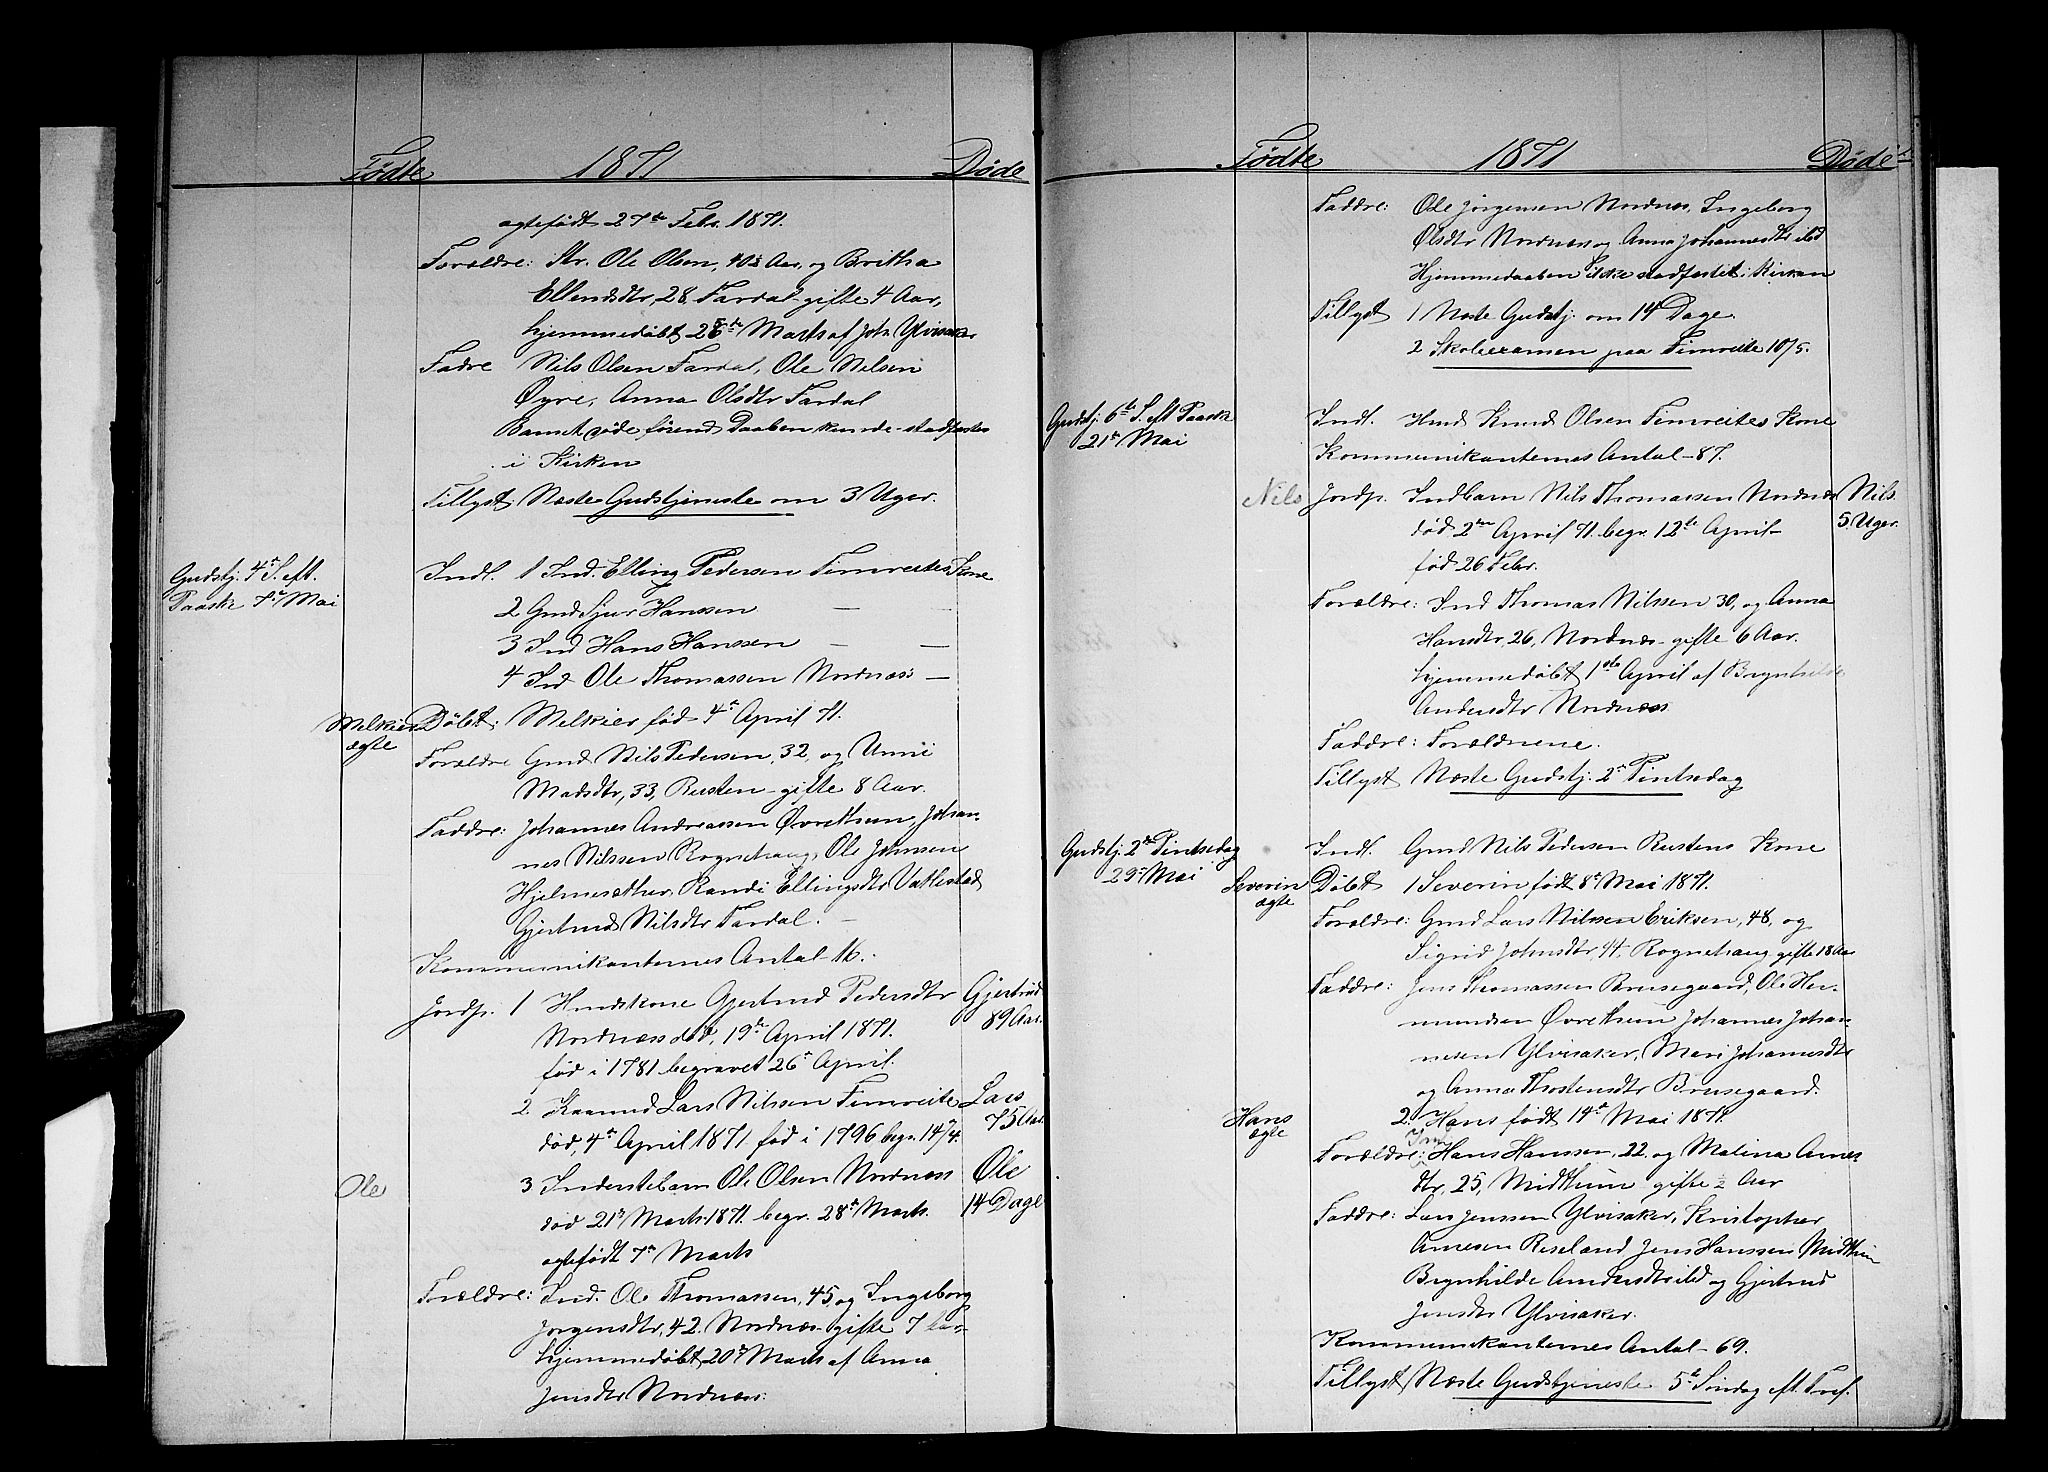 Födte 1871 Døde
ægtefødt 27de Febr. 1871.
Forældre: Str. Ole Olsen, 40 Aar, og Britha
Ellendsdtr, 28 Fardal gifte 4 Aar,
hjemmedøbt 26de Marts af Joh. Ylvisaker
Fadre Nils Olsen Fardal, Ole Nilsen
Øyre, Anna Olsdtr Fardal
Barnet døde førend Daaben kunde stadfæstes
i Kirken
Tillyst: Næste Gudstjeneste om 3 Uger.
Gudstj. 4de S. eft.
Paaske 7de Mai
Indl. 1 Ind. Elling Pedersen Fimreites Kone
2 Gmd Sjur Hanssen — —
3 Ind Hans Hanssen — —
4 Ind Ole Thomassen Nordnæs —
Melkier
ægte
Døbt: Melkier født 4de April 71.
Forældre Gmd Nils Pedersen, 32, og Unni
Madsdtr, 33, Rusten gifte 8 Aar.
Faddre: Johannes Andreassen Øvrethun, Johan-
nes Nilssen Rognehaug, Ole Johnsen
Hjelmesæther, Randi Ellingsdtr Vatlestad
Gjertrud Nilsdtr Fardal.
Kommunikanternes Antal 16.
Jordp. 1 Hmdskone Gjertrud Pedersdtr
Nordnæs død, 19de April 1871.
født i 1781 begravet 26de April.
Gjertrud
89 Aar.
2. Kaarmd Lars Nilssen Fimreite
død, 4de April 1871 fød i 1796 begr. 14/4.
Lars
75 Aar.
Ole
3 Inderstebarn Ole Olsen Nordnæs
død 21de Marts 1871. begr. 28de Marts.
ægtefødt 7de Marts
Ole
14 Dage
Forældre: Ind. Ole Thomassen, 45, og Ingeborg
Jørgensdtr, 42, Nordnæs gifte 7 Aar
hjemmedøbt 20de Marts af Anna
Jensdtr Nordnæs.
Födte 1871 Døde
Faddre: Ole Jørgensen Nordnæs, Ingeborg
Olsdtr Nordnæs og Anna Johannesdtr ibd
Hjemmedaaben ikke stadfæstet i Kirken
Tillyst 1 Næste Gudstj. om 14 Dage.
2 Skoleexamen paa Fimreite 10/5.
Gudstj. 6te S. eft Paaske
21de Mai
Indl. Hmd Knud Olsen Fimreites Kone
Kommunikanternes Antal 87.
Nils
Jordp. Indbarn Nils Thomassen Nordnæs
død 2den April 71. begr. 12te April
fød 26 Febr.
Nils.
5 Uger.
Forældre: Ind Thomas Nilssen 30, og Anna
Hansdtr, 26, Nordnæs gifte 6 Aar.
hjemmedøbt 1ste April af Brynhilde
Andersdtr Nordnæs
Faddre: Forældrene.
Tillyst Næste Gudstj. 2den Pintsedag
Gudstj. 2den Pintsedag
29de Mai
Indl. Gmd Nils Pedersen Rustens Kone
Severin
ægte
Døbt 1 Severin født 8de Mai 1871.
Forældre: Gmd Lars Nilssen Eriksen, 48, og
Sigrid Johnsdtr, 44, Rognehaug gifte 18 Aar
Faddre: Jens Thomassen Brusegaard, Ole Her-
mundsen Øvrethun Johannes Johan-
nesen Ylvisaker, Mari Johannesdtr
og Anna Thostensdtr Brusegaard.
Hans
ægte
2. Hans født 14de Mai 1871.
Forældre: Ind Hans Hanssen, 22 og Malina Arnes-
dtr, 25, Midthun gifte 2 Aar
Faddre: Lars Jenssen Ylvisaker, Kristopher
Arnesen Riseland, Jens Hanssen Midthun
Brynhilde Andersdtr ibd og Gjertrud
Jensdtr Ylvisaker.
Kommunikanternes Antal 69.
Tillyst Næste Gudstjeneste 5te Søndag eft. Tref.